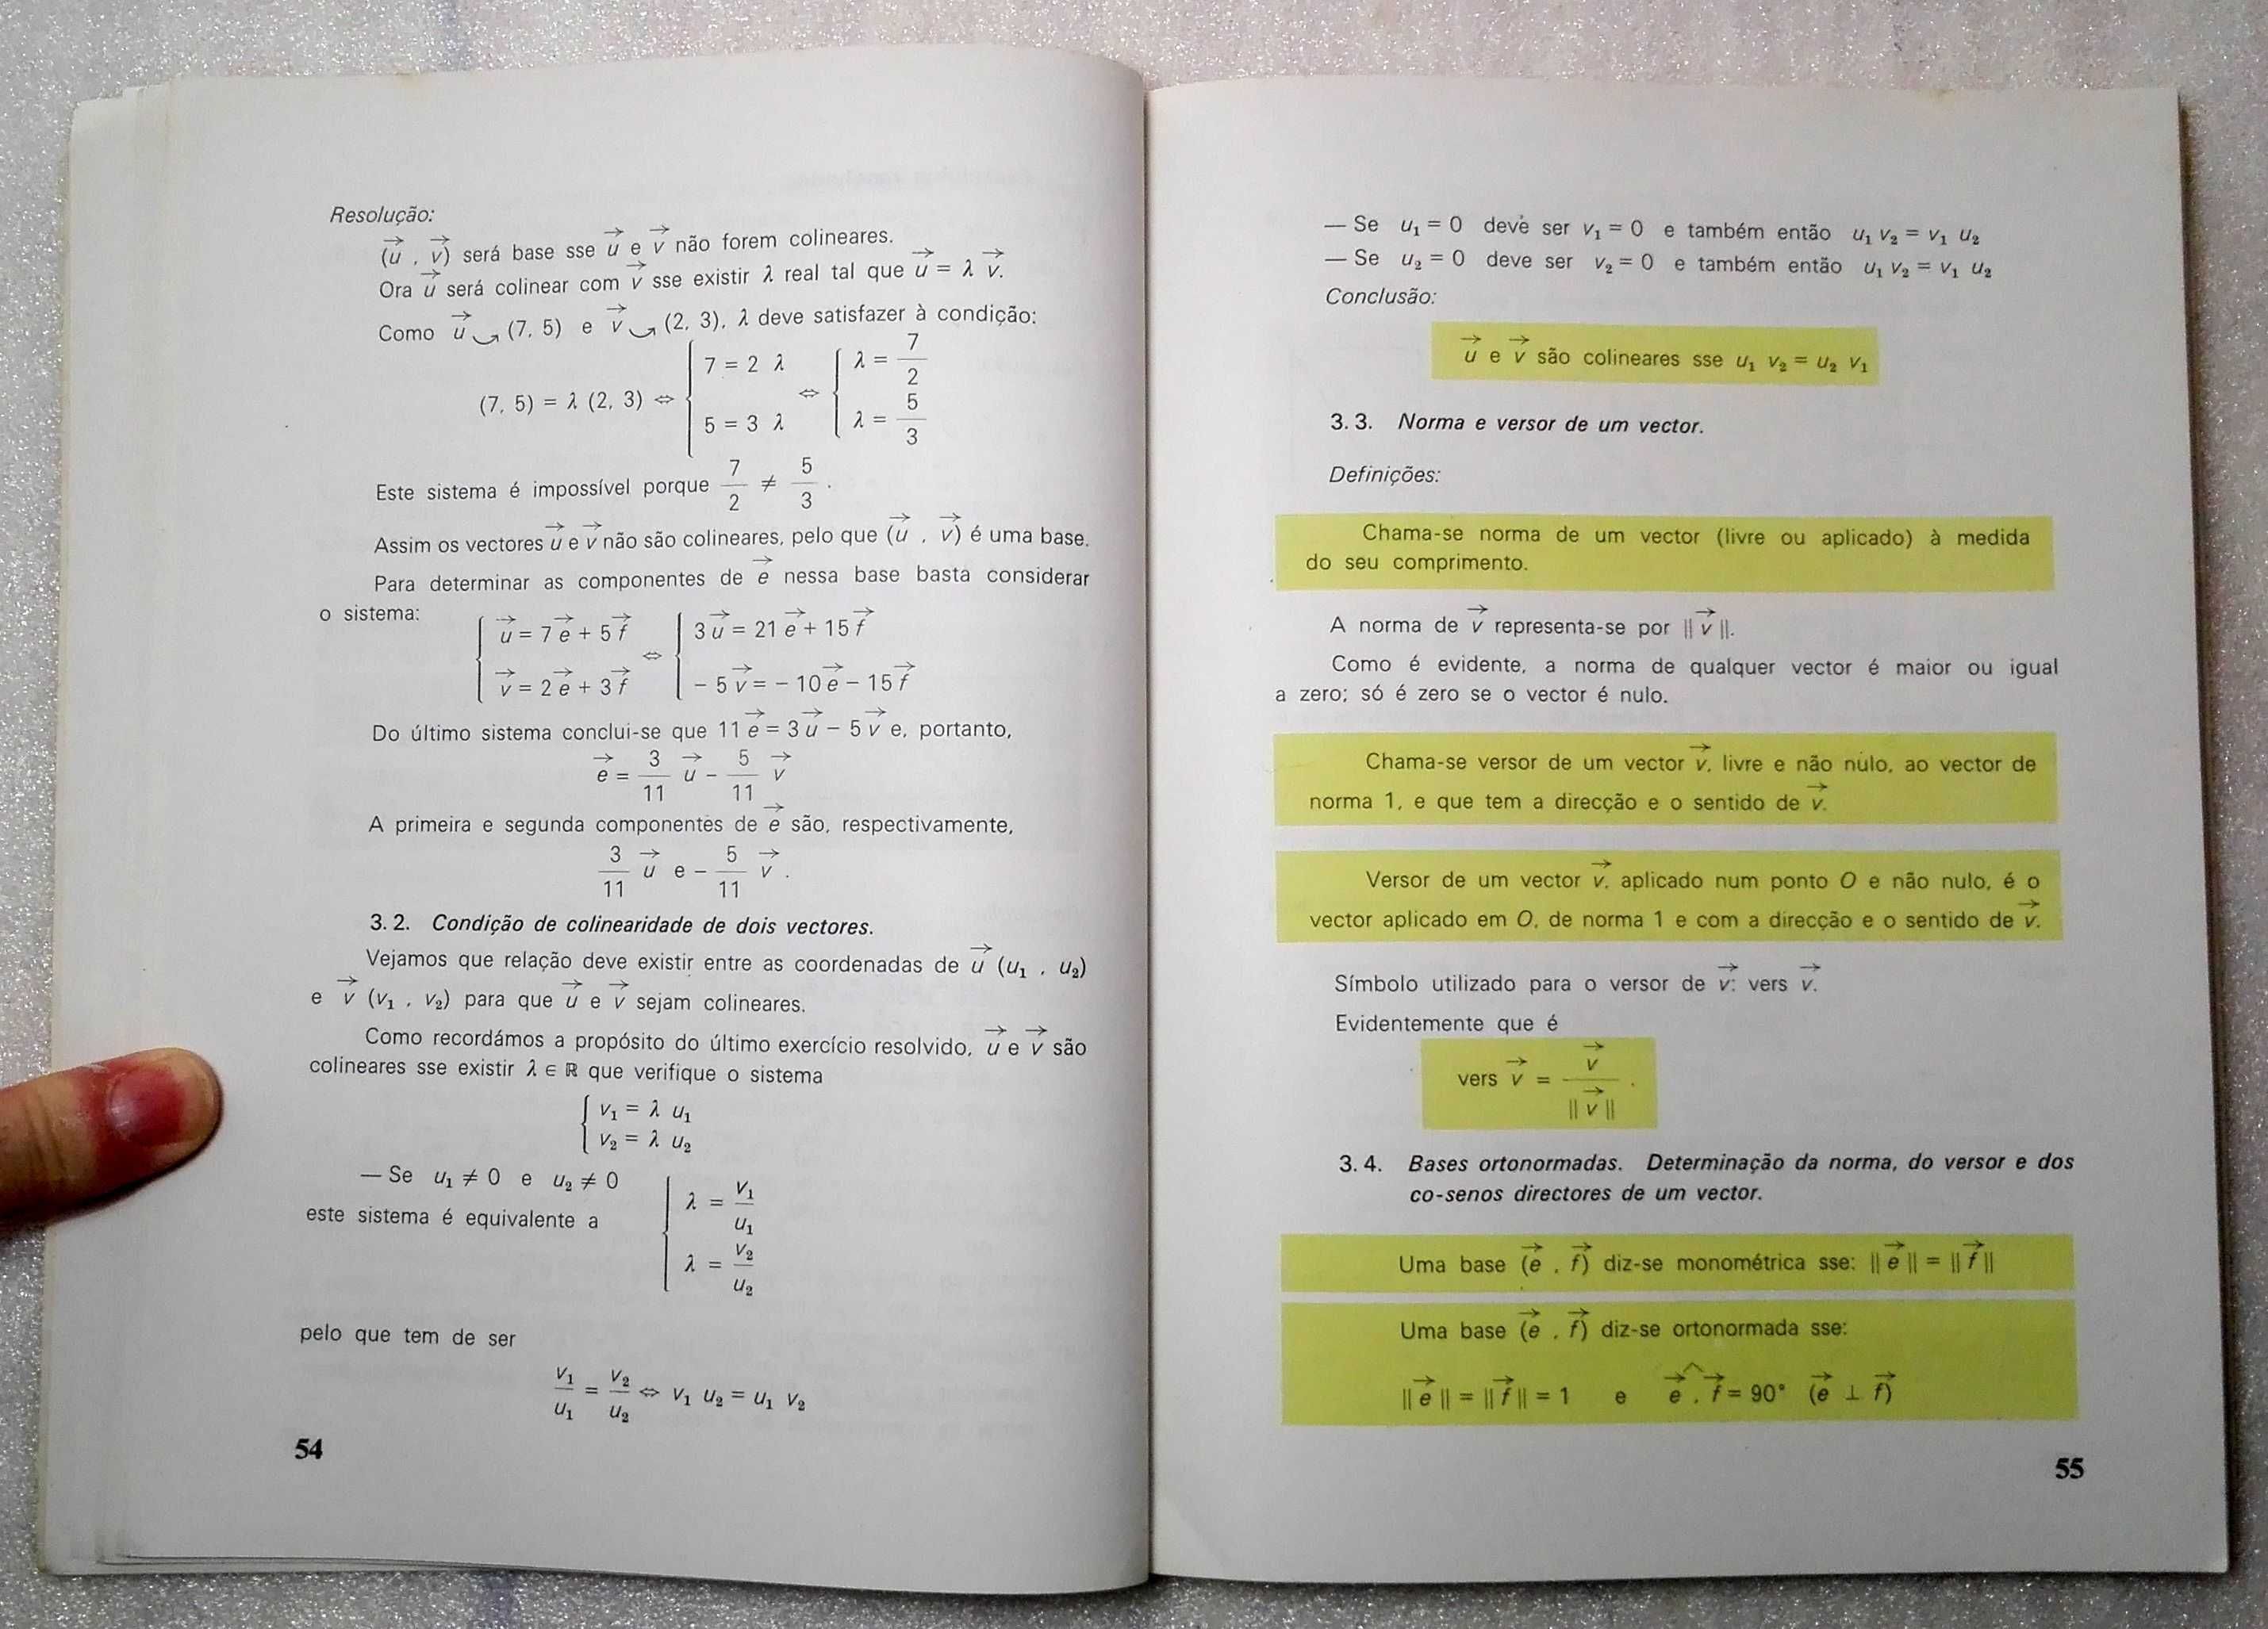 Resolução:
(u⃗ , v⃗) será base sse u⃗ e v⃗ não forem colineares.
Ora u⃗ será colinear com v⃗ sse existir λ real tal que u⃗ = λ v⃗.
Como u⃗ ⤿ (7, 5) e v⃗ ⤿ (2, 3), λ deve satisfazer à condição:
(7, 5) = λ (2, 3) ⇔ { 7 = 2 λ ; 5 = 3 λ ⇔ { λ = 7/2 ; λ = 5/3
Este sistema é impossível porque 7/2 ≠ 5/3 .
Assim os vectores u⃗ e v⃗ não são colineares, pelo que (u⃗ , v⃗) é uma base.
Para determinar as componentes de e⃗ nessa base basta considerar
o sistema:
{ u⃗ = 7 e⃗ + 5 f⃗ ; v⃗ = 2 e⃗ + 3 f⃗ ⇔ { 3 u⃗ = 21 e⃗ + 15 f⃗ ; − 5 v⃗ = − 10 e⃗ − 15 f⃗
Do último sistema conclui-se que 11 e⃗ = 3 u⃗ − 5 v⃗ e, portanto,
e⃗ = 3/11 u⃗ − 5/11 v⃗
A primeira e segunda componentes de e⃗ são, respectivamente,
3/11 u⃗ e − 5/11 v⃗ .
3. 2. Condição de colinearidade de dois vectores.
Vejamos que relação deve existir entre as coordenadas de u⃗ (u₁ , u₂)
e v⃗ (v₁ , v₂) para que u⃗ e v⃗ sejam colineares.
Como recordámos a propósito do último exercício resolvido, u⃗ e v⃗ são
colineares sse existir λ ∈ ℝ que verifique o sistema
{ v₁ = λ u₁
v₂ = λ u₂
— Se u₁ ≠ 0 e u₂ ≠ 0
este sistema é equivalente a { λ = v₁/u₁ ; λ = v₂/u₂
pelo que tem de ser
v₁/u₁ = v₂/u₂ ⇔ v₁ u₂ = u₁ v₂
54
— Se u₁ = 0 deve ser v₁ = 0 e também então u₁ v₂ = v₁ u₂
— Se u₂ = 0 deve ser v₂ = 0 e também então u₁ v₂ = v₁ u₂
Conclusão:
u⃗ e v⃗ são colineares sse u₁ v₂ = u₂ v₁
3. 3. Norma e versor de um vector.
Definições:
Chama-se norma de um vector (livre ou aplicado) à medida
do seu comprimento.
A norma de v⃗ representa-se por || v⃗ ||.
Como é evidente, a norma de qualquer vector é maior ou igual
a zero; só é zero se o vector é nulo.
Chama-se versor de um vector v⃗, livre e não nulo, ao vector de
norma 1, e que tem a direcção e o sentido de v⃗.
Versor de um vector v⃗, aplicado num ponto O e não nulo, é o
vector aplicado em O, de norma 1 e com a direcção e o sentido de v⃗.
Símbolo utilizado para o versor de v⃗: vers v⃗.
Evidentemente que é
vers v⃗ = v⃗ / || v⃗ || .
3. 4. Bases ortonormadas. Determinação da norma, do versor e dos
co-senos directores de um vector.
Uma base (e⃗ , f⃗) diz-se monométrica sse: || e⃗ || = || f⃗ ||
Uma base (e⃗ , f⃗) diz-se ortonormada sse:
|| e⃗ || = || f⃗ || = 1 e e⃗ ^, f⃗ = 90° (e⃗ ⊥ f⃗)
55